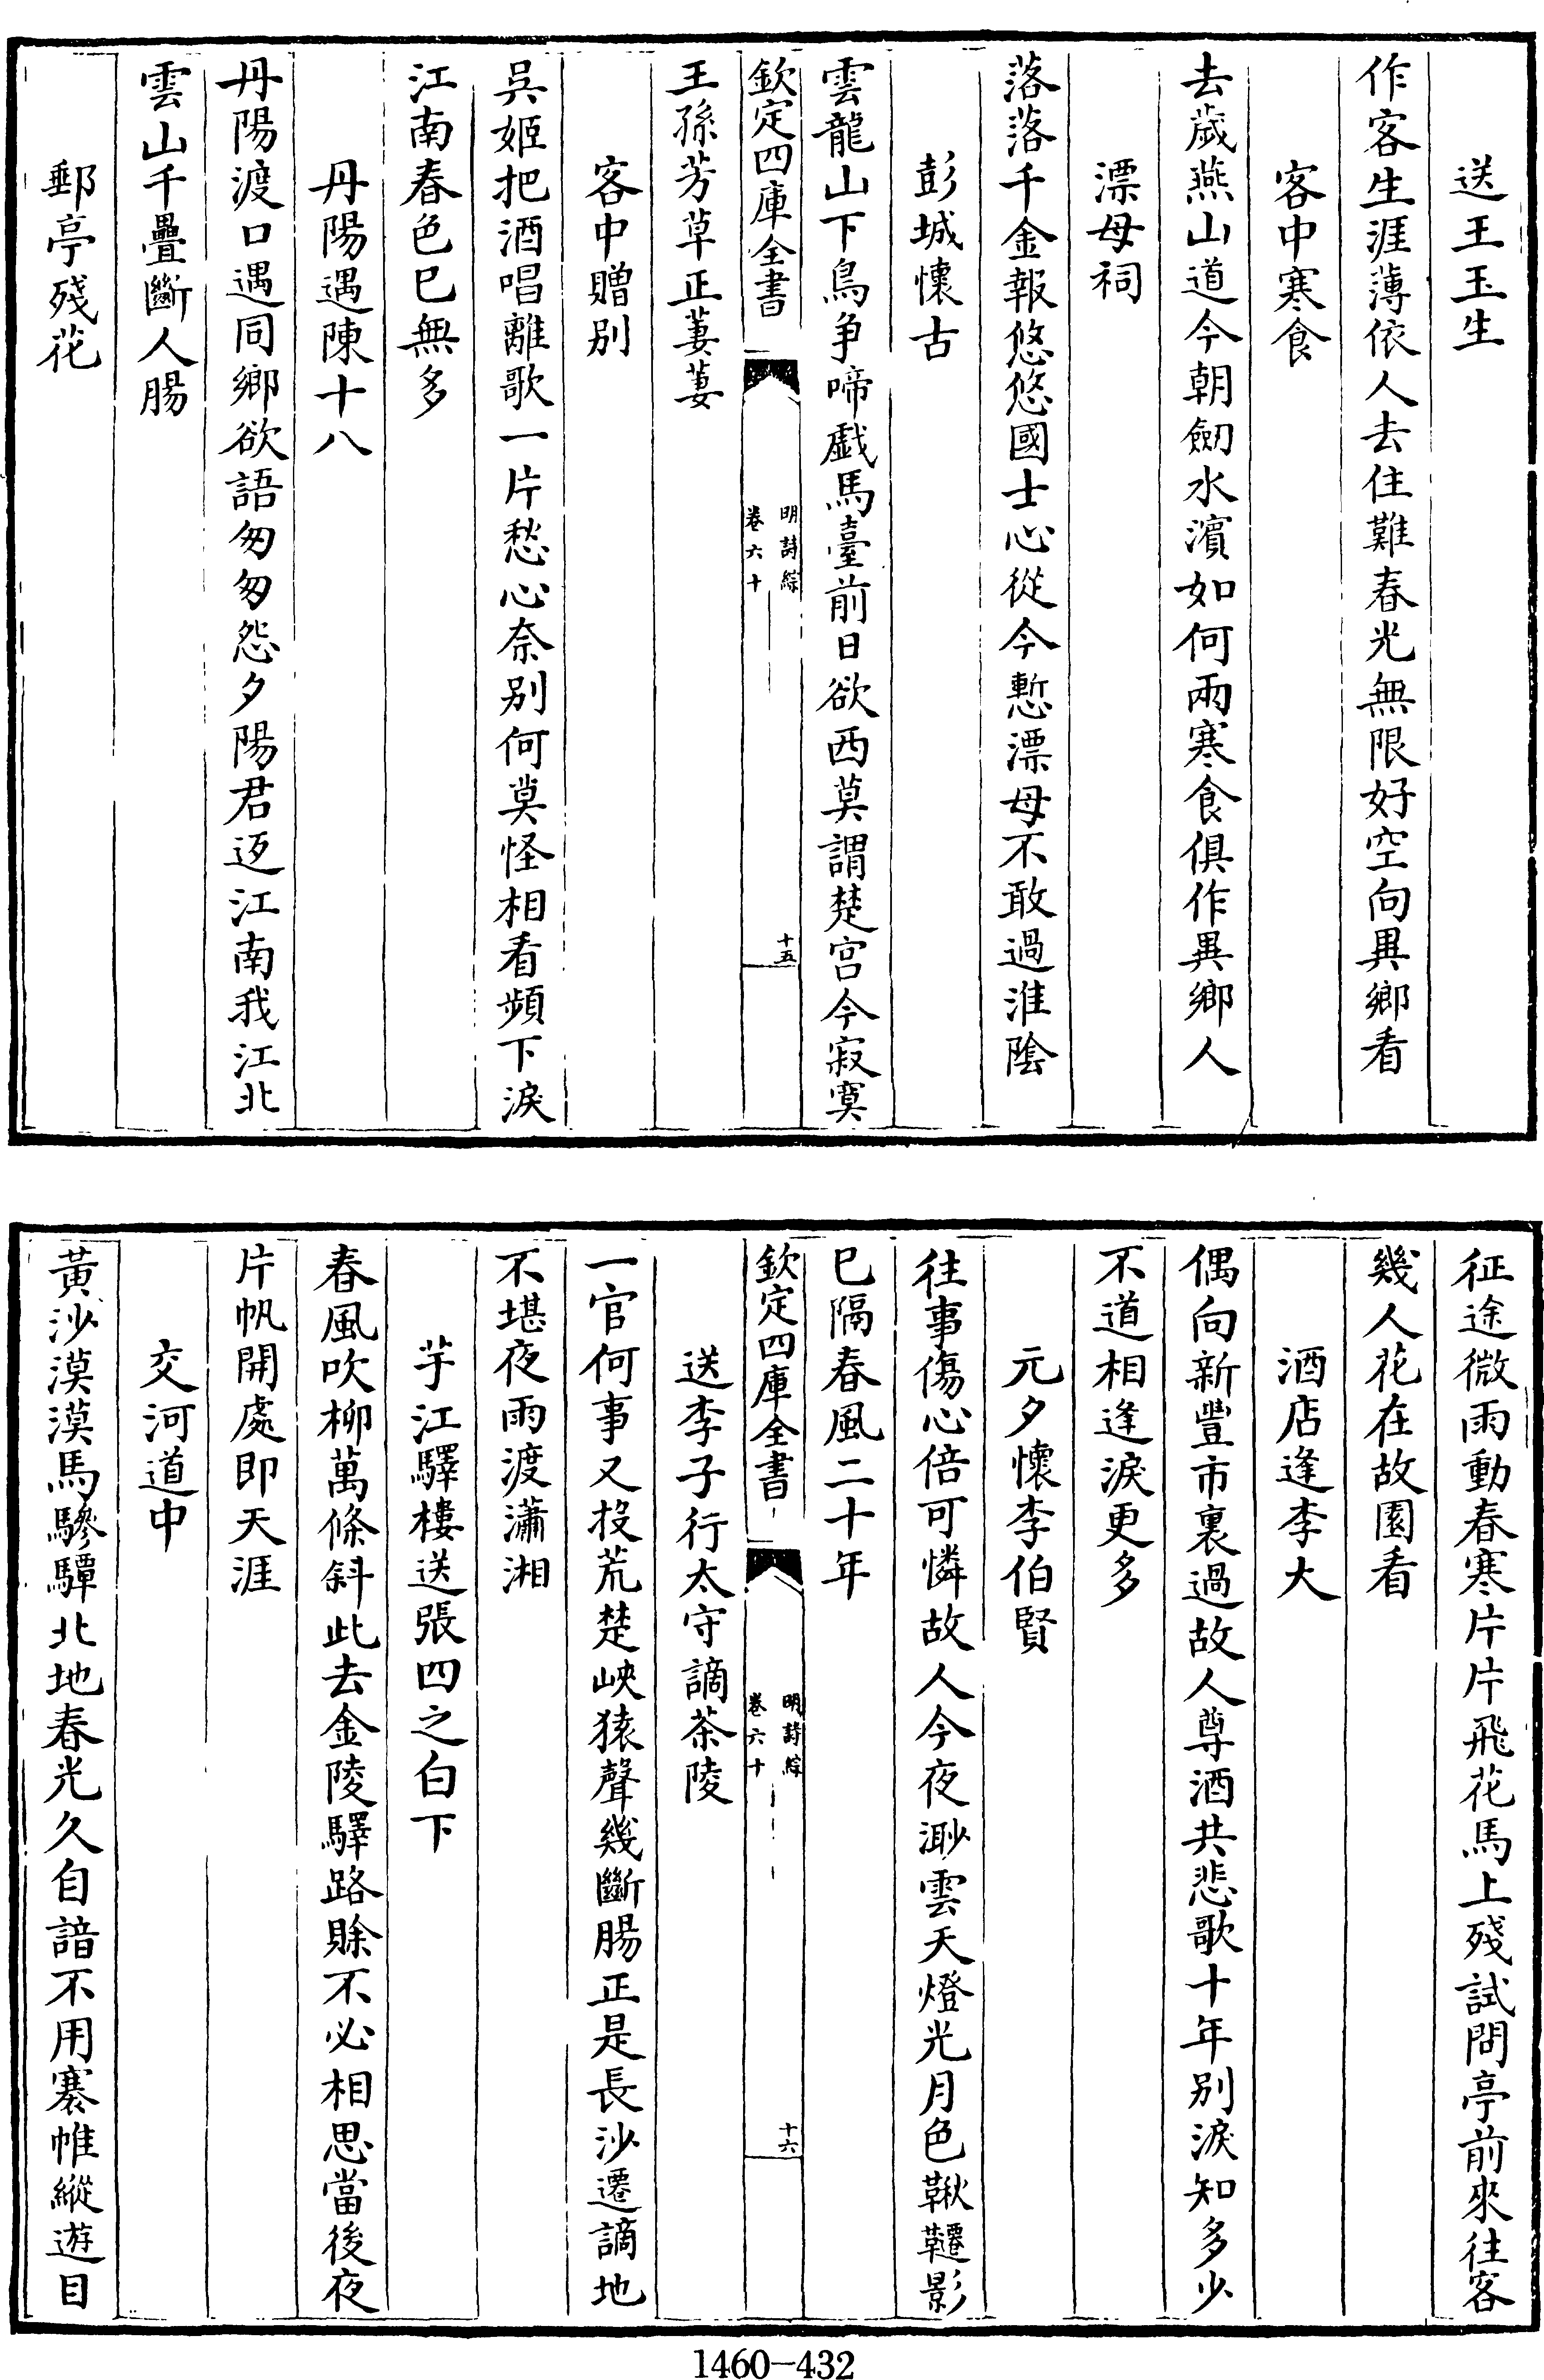 送王玉生
作客生涯薄依人去住難春光無限好空向異鄉看
客中寒食
去歲燕山道今朝劒水濱如何兩寒食俱作異鄉人
漂母祠
落落千金報悠悠國士心從今慙漂母不敢過淮陰
彭城懷古
雲龍山下鳥争啼戲馬臺前日欲西莫謂楚宫今寂寞
欽定四庫全書
明詩綜
卷六十
十五
王孫芳草正萋萋
客中贈别
吳姬把酒唱離歌一片愁心奈别何莫怪相看頻下淚
江南春色已無多
丹陽遇陳十八
丹陽渡口遇同鄉欲語匆匆怨夕陽君返江南我江北
雲山千疊斷人腸
郵亭殘花
征途微雨動春寒片片飛花馬上殘試問亭前來往客
幾人花在故園看
酒店逢李大
偶向新豐市裏過故人尊酒共悲歌十年别淚知多少
不道相逢淚更多
元夕懷李伯賢
往事傷心倍可憐故人今夜渺雲天燈光月色鞦韆影
已隔春風二十年
欽定四庫全書
明詩綜
卷六十
十六
送李子行太守謫茶陵
一官何事又投荒楚峽猿聲幾斷腸正是長沙遷謫地
不堪夜雨渡瀟湘
芋江驛樓送張四之白下
春風吹柳萬條斜此去金陵驛路賒不必相思當後夜
片帆開處即天涯
交河道中
黃沙漠漠馬驂驔北地春光久自諳不用褰帷縱遊目
1460-432